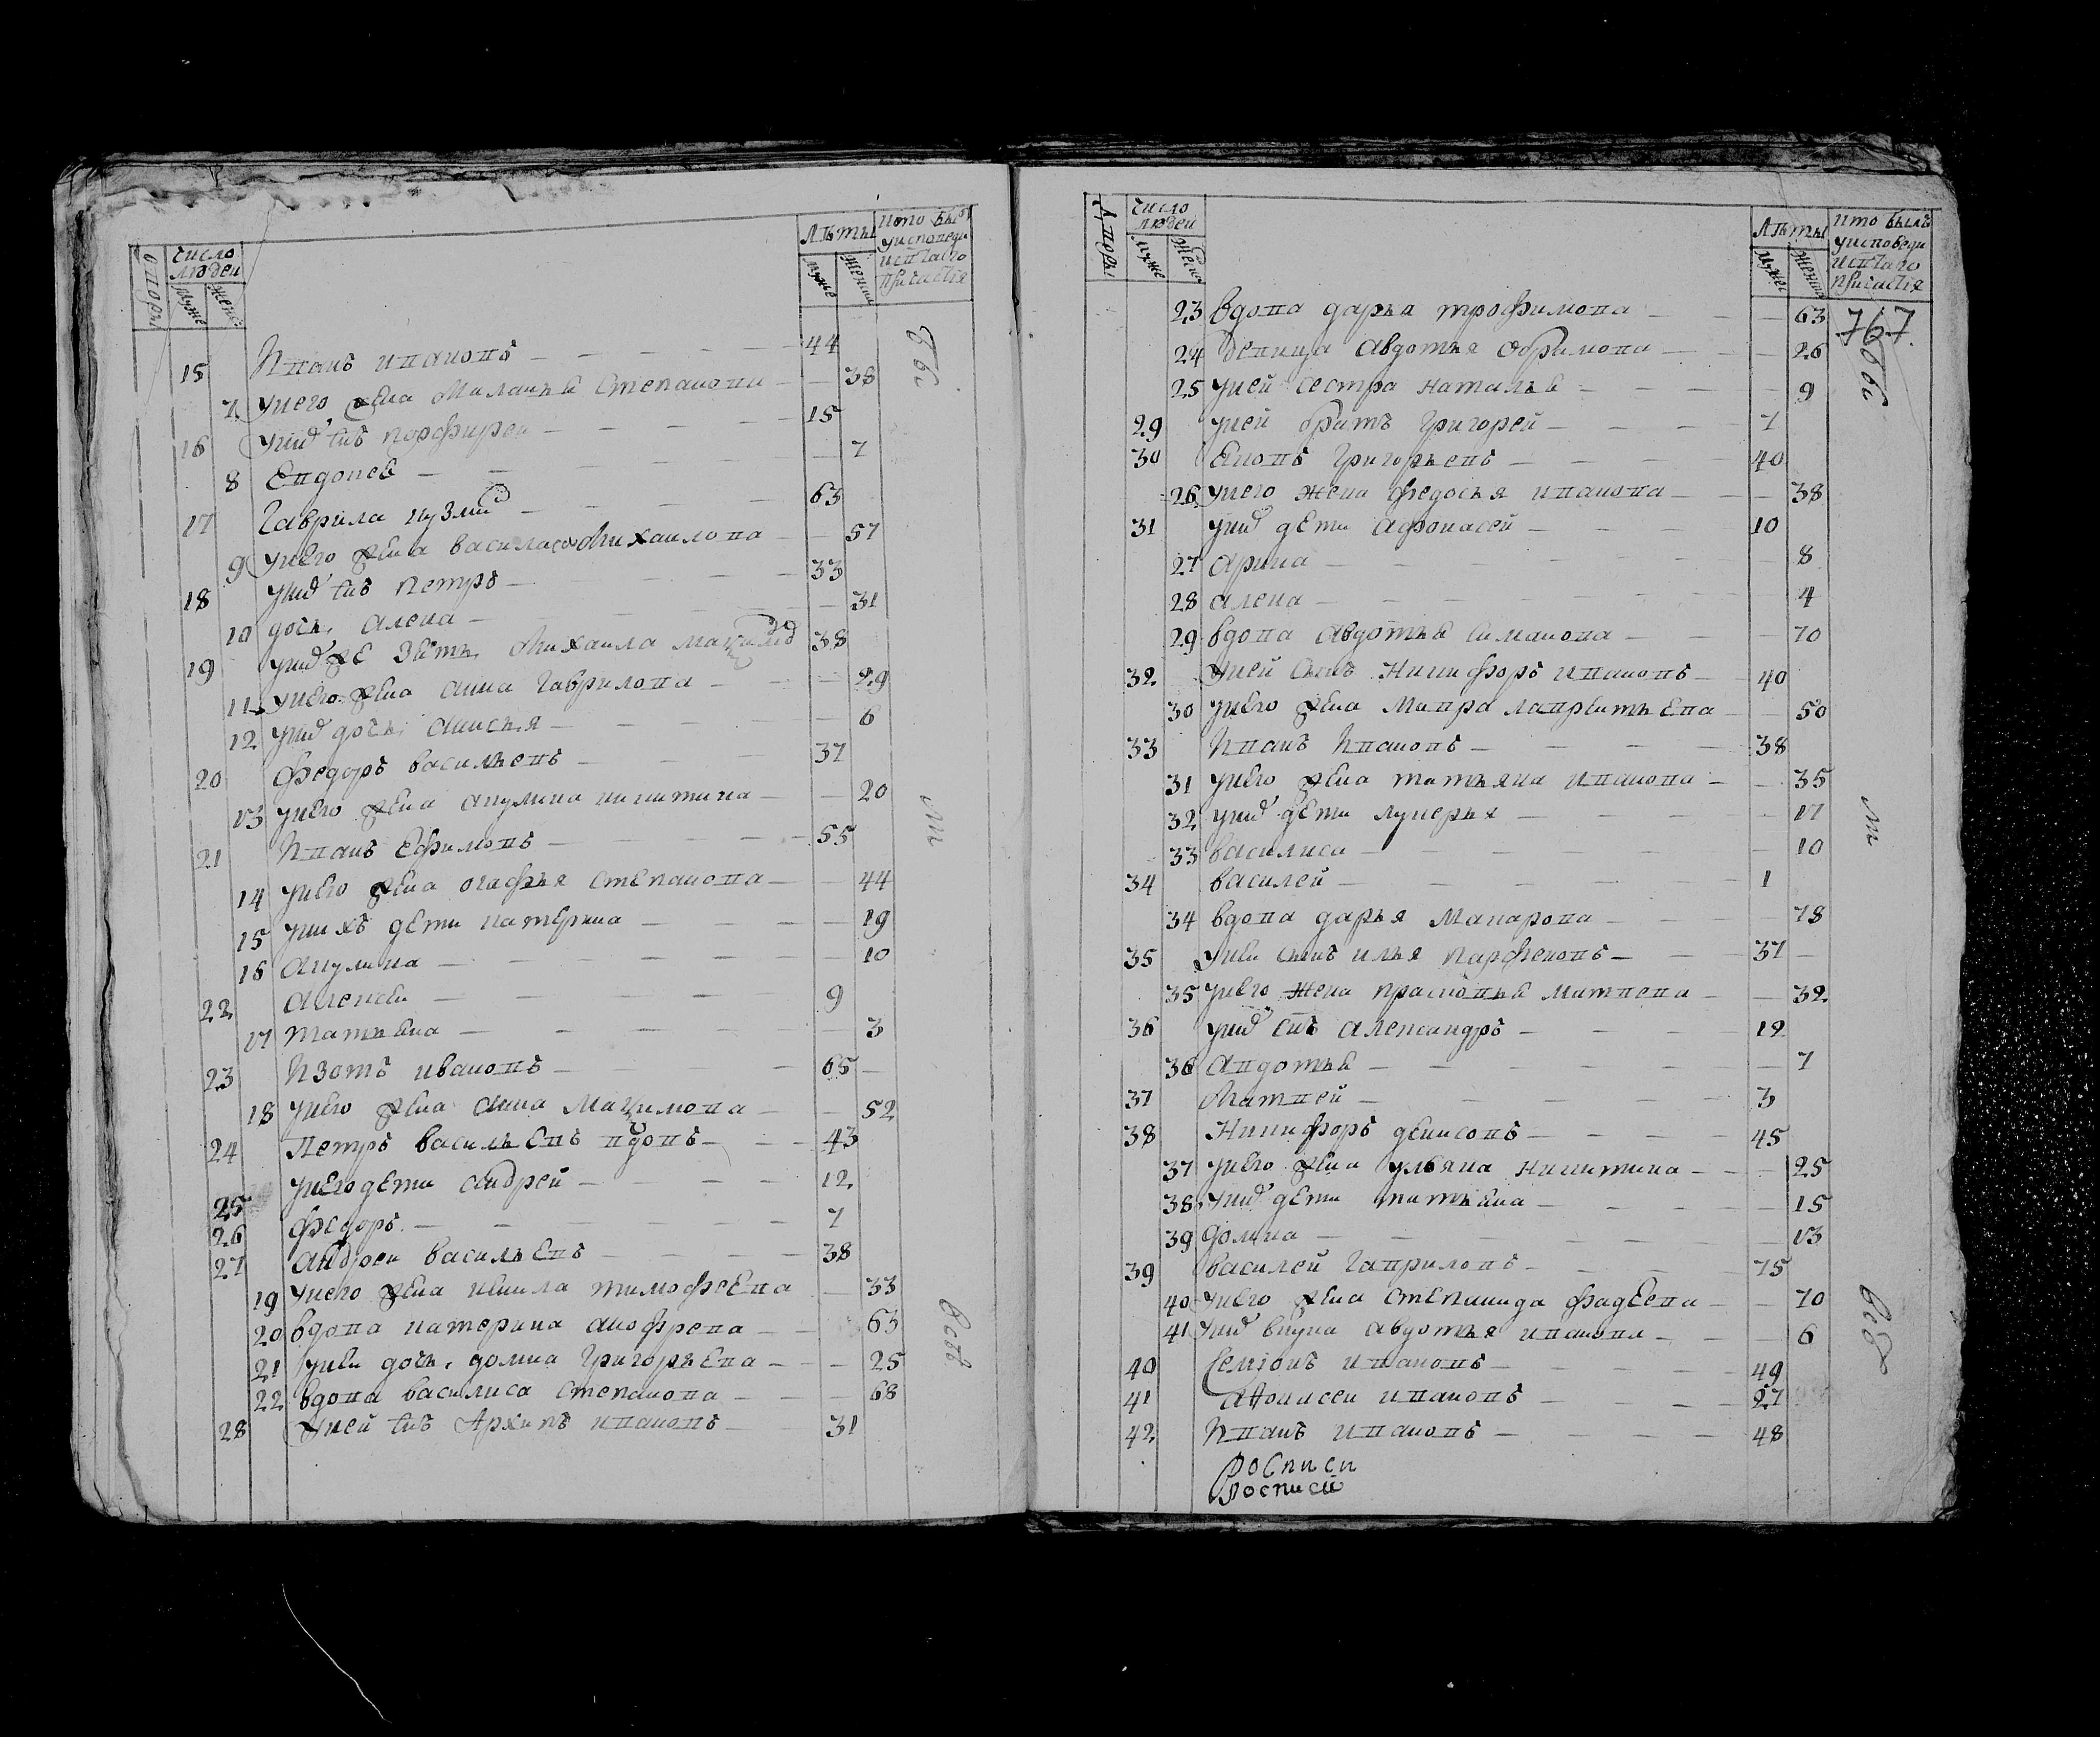 дворы
число людей
муже
женс
Лѣты
мужес
женски
кто былъ у исповеди и свтаго причастiя
15 Иванъ ивановъ 44
7 у него жена Маланья Степанова 38
16 у них снъ порфирей 15
8 Евдокея 7
17 Гаврила кузмин 63
9 у него жена василиса михаилова 57
18 у них снъ петръ 33
10 дочь алена 31
19 у них же зять михаила максимов 38
11 у него жена анна Гаврилова 29
12 у них дочь анисья 6
20 федоръ васильевъ 37
13 у него жена акулина никитина 20
21 Иванъ Ефимовъ 55
14 у него жена агафья степанова 44
15 у нихъ дети катерина 19
16 акулина 10
22 алексеи 9
17 татьяна 3
23 Изотъ ивановъ 65
18 у него жена анна Максимова 52
24 Петръ васильевъ вдовъ 43
25 у него дети андрей 12
26 федоръ 7
27 андреи васильевъ 38
19 у него жена некила тимофеева 33
20 вдова катерина анофрева 63
21 у неи дочь домна григорьева 25
22 вдова василиса степанова 68
28 у ней снъ Архипъ ивановъ 31
все
дворы
число людей
муже
женс
Лѣты
мужес
женски
кто былъ у исповеди и свтаго причастiя
767
23 вдова дарья трофимова 63
24 девица авдотья ефримова 26
25 у ней сестра наталья 9
29 у ней братъ григорей 7
30 Яковъ григорьевъ 40
26 у него жена федосья иванова 38
31 у них дети афонасей 10
27 арина 8
28 алена 4
29 вдова авдотья симанова 70
32 у ней сынъ Никифоръ ивановъ 40
30 у него жена мавра лаврентьева 50
33 Иванъ Ивановъ 38
31 у него жена татьяна иванова 35
32 у них дети лукерья 17
33 василиса 10
34 василей 1
34 вдова дарья макарова 78
35 у неи сынъ илья парфеновъ 37
35 у него жена прасковья матвева 32
36 у них снъ александръ 12
36 авдотья 7
37 матвей 3
38 Никифоръ денисовъ 45
37 у него жена ульяна никитина 25
38 у них дети татьяна 15
39 домна 13
39 василей гавриловъ 75
40 у него жена степанида фадеева 70
41 у них внука авдотья иванова 6
40 Семionъ ивановъ 49
41 афонасеи ивановъ 27
42 Иванъ ивановъ 48
росписи
росписи
все